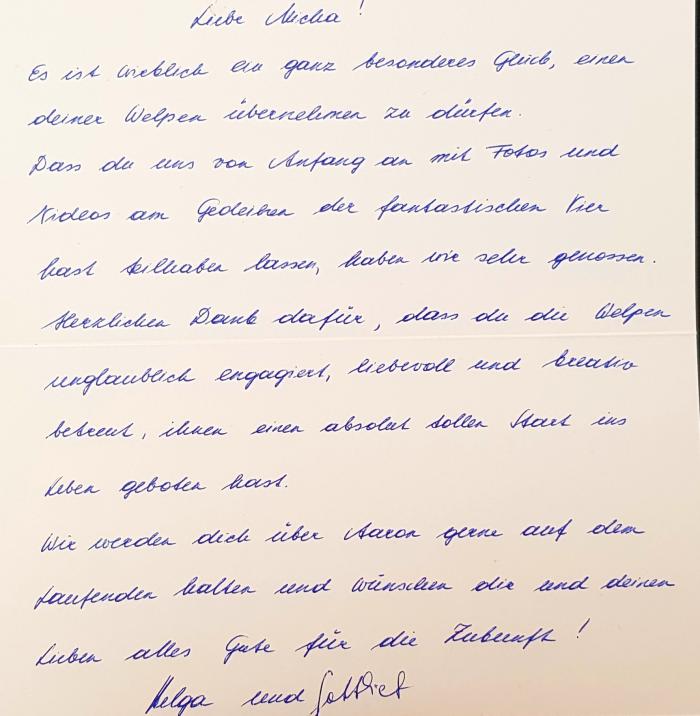 Liebe Micha!
Es ist wirklich ein ganz besonderes Glück, einen
deiner Welpen übernehmen zu dürfen.
Dass du uns von Anfang an mit Fotos und
Videos am Gedeihen der fantastischen Vier
hast teilhaben lassen, haben wir sehr genossen.
Herzlichen Dank dafür, dass du die Welpen
unglaublich engagiert, liebevoll und kreativ
betreut, ihnen einen absolut tollen Start ins
Leben geboten hast.
Wir werden dich über Aaron gerne auf dem
Laufenden halten und wünschen dir und deinen
Lieben alles Gute für die Zukunft!
Helga und Gottlief